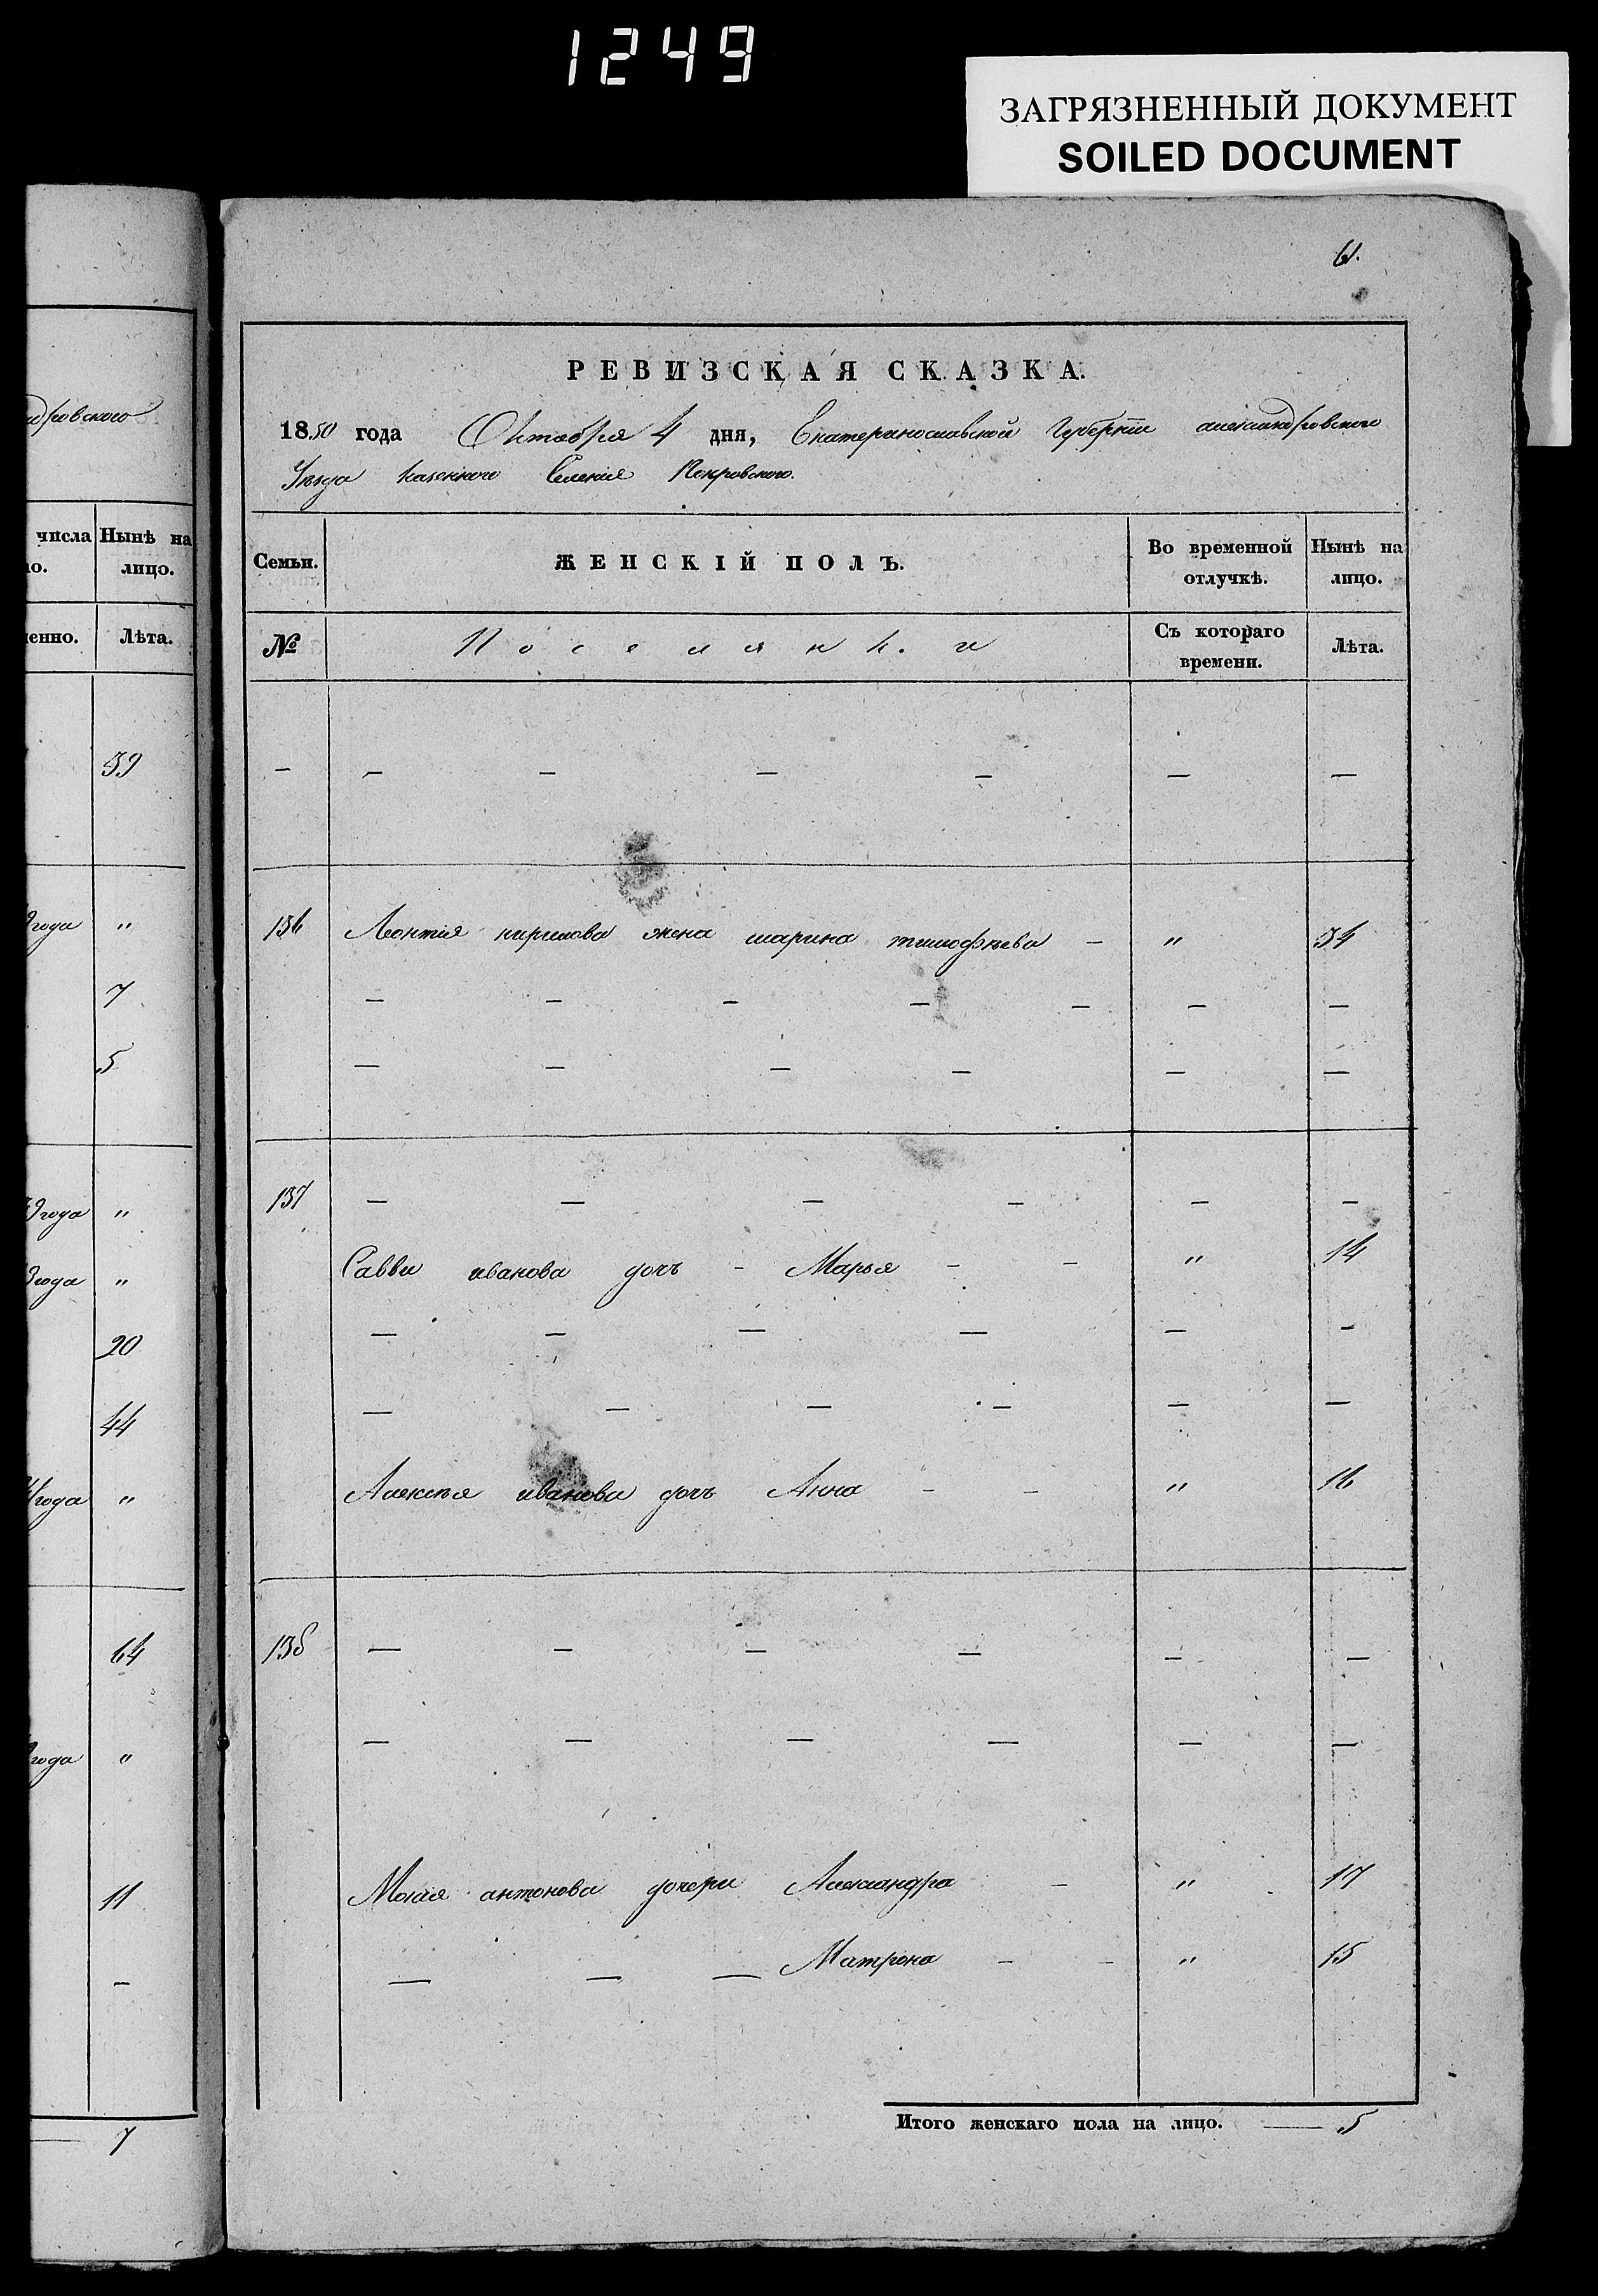 1249
ЗАГРЯЗНЕННЫЙ ДОКУМЕНТ
SOILED DOCUMENT
61.
РЕВИЗСКАЯ СКАЗКА.
1850 года Октября 4 дня, Екатеринославской Губерніи александровского
Уѣзда казенного Селенія Покровского.
Семьи. ЖЕНСКІЙ ПОЛЪ. Во временной отлучкѣ. Нынѣ на лицо.
№ Поселянки Съ котораго времени. Лѣта.
— — — — — — —
136 Леонтія кирилова жена марина тимофѣева — " 34
— — — — — — —
— — — — — —
137 — — — — — —
Саввы иванова дочь - Марья - - " 14
— — — — — —
— — — — — —
Алексѣя иванова дочь Анна - - " 16
138 — — — — — —
— — — — — —
Мокия антонова дочери Александра - " 17
— — — Матрона - - " 15
Итого женскаго пола на лицо. — 5
числа Нынѣ на
о. лицо.
енно. Лѣта.
39
года "
7
5
9 года "
3 года "
20
44
года "
64
года "
11
-
— 7